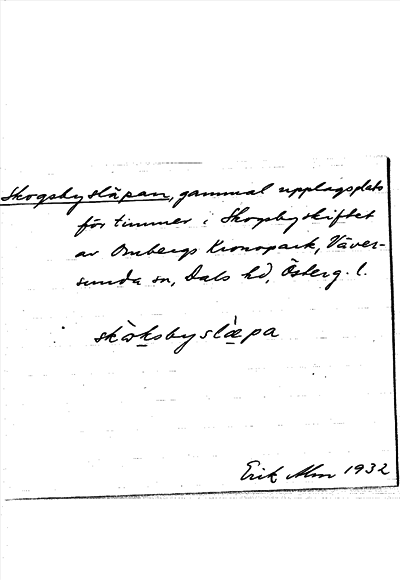 Skogsbysläpan, gammal upplagsplats
för timmer i Skogsbyskiftet
av Ombergs Kronopark, Väver-
sunda sn, Dals hd, Österg. l.
skò̱ksbyslæ̀pa
Erik Alm 1932